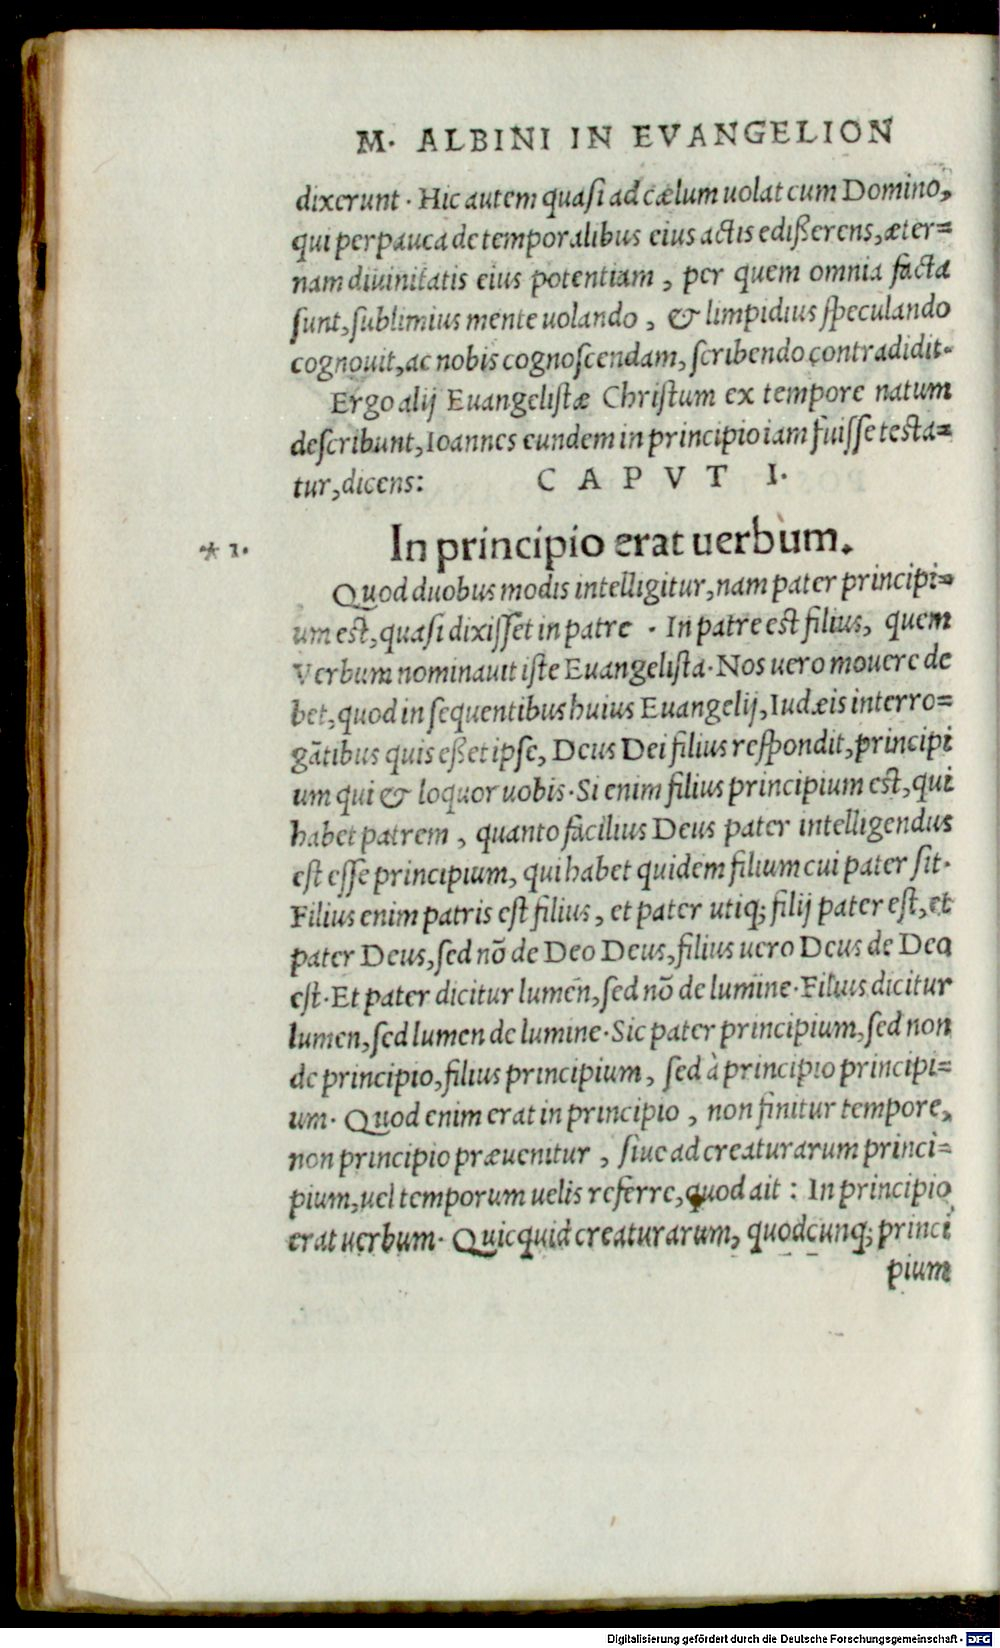 M. ALBINI IN EVANGELION
dixerunt. Hic autem quasi ad cælum uolat cum Domino,
qui perpauca de temporalibus eius actis edißerens, æter=
nam diuinitatis eius potentiam, per quem omnia facta
sunt, sublimius mente uolando, & limpidius speculando
cognouit, ac nobis cognoscendam, scribendo contradidit.
Ergo alij Euangelistæ Christum ex tempore natum
describunt, Ioannes eundem in principio iam fuisse testa=
tur, dicens: CAPVT I.
* 1. In principio erat uerbum.
Quod duobus modis intelligitur, nam pater principi=
um est, quasi dixisset in patre. In patre est filius, quem
Verbum nominauit iste Euangelista. Nos uero mouere de
bet, quod in sequentibus huius Euangelij, Iudæis interro=
gātibus quis eßet ipse, Deus Dei filius respondit, principi
um qui & loquor uobis. Si enim filius principium est, qui
habet patrem, quanto facilius Deus pater intelligendus
est esse principium, qui habet quidem filium cui pater sit.
Filius enim patris est filius, et pater utiq; filij pater est, et
pater Deus, sed nō de Deo Deus, filius uero Deus de Deo
est. Et pater dicitur lumen, sed nō de lumine. Filius dicitur
lumen, sed lumen de lumine. Sic pater principium, sed non
de principio, filius principium, sed à principio principi=
um. Quod enim erat in principio, non finitur tempore,
non principio præuenitur, siue ad creaturarum princi=
pium, uel temporum uelis referre, quod ait: In principio
erat uerbum. Quicquid creaturarum, quodcunq; princi
pium
Digitalisierung gefördert durch die Deutsche Forschungsgemeinschaft - DFG